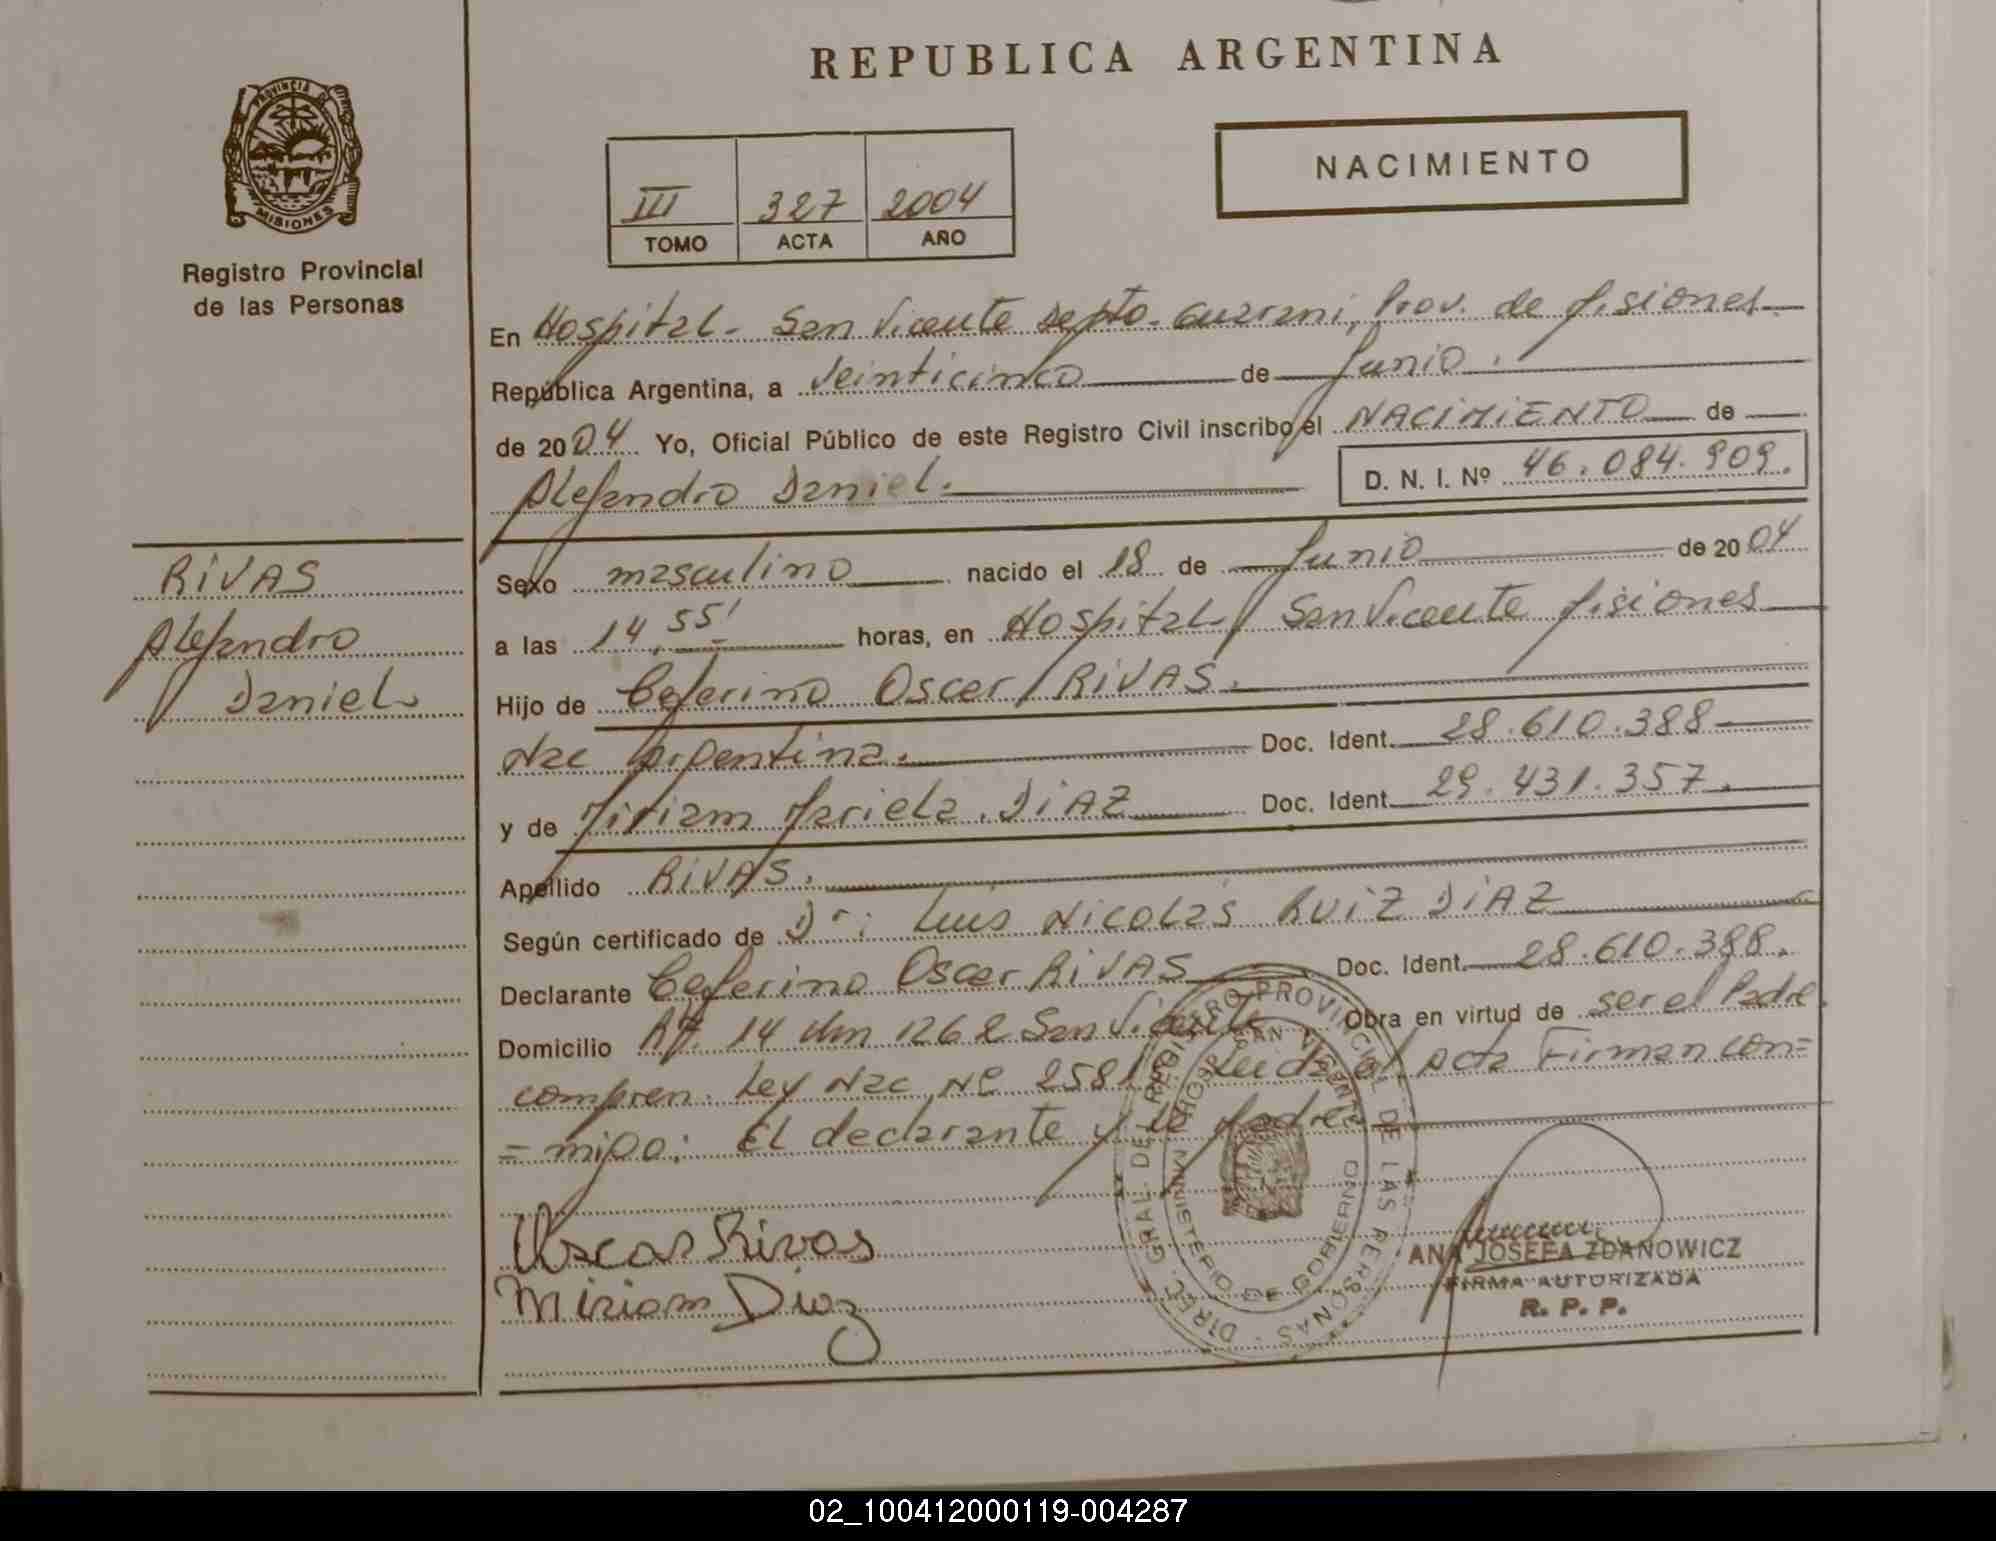 REPUBLICA ARGENTINA
PROVINCIA DE
MISIONES
Registro Provincial
de las Personas
NACIMIENTO
III 327 2004
TOMO ACTA AÑO
En Hospital - San Vicente Depto. Guarani, Prov. de Misiones.
República Argentina, a Veinticinco de Junio.
de 2004 Yo, Oficial Público de este Registro Civil inscribo el NACIMIENTO de
Alejandro Daniel.
D. N. I. Nº 46.084.909.
RIVAS
Alejandro
Daniel
Sexo masculino nacido el 18 de Junio de 2004
a las 14,55' horas, en Hospital - San Vicente Misiones
Hijo de Ceferino Oscar RIVAS.
Nac Argentina. Doc. Ident. 28.610.388
y de Miriam Mariela. DIAZ Doc. Ident. 29.431.357.
Apellido RIVAS.
Según certificado de Dr: Luis Nicolás RUIZ DIAZ
Declarante Ceferino Oscar RIVAS Doc. Ident. 28.610.388.
Domicilio 14 Km 1262 San Vicente Obra en virtud de ser el Padre.
compren. Ley Nac Nº Leida el Acta Firman con=
=migo: El declarante y la Madre
Oscar Rivas
Miriam Diaz
DIREC. GRAL. DEL REGISTRO PROVINCIAL DE LAS PERSONAS
MINISTERIO DE GOBIERNO
SAN VICENTE
ANA JOSEFA ZDANOWICZ
FIRMA AUTORIZADA
R. P. P.
02_100412000119-004287